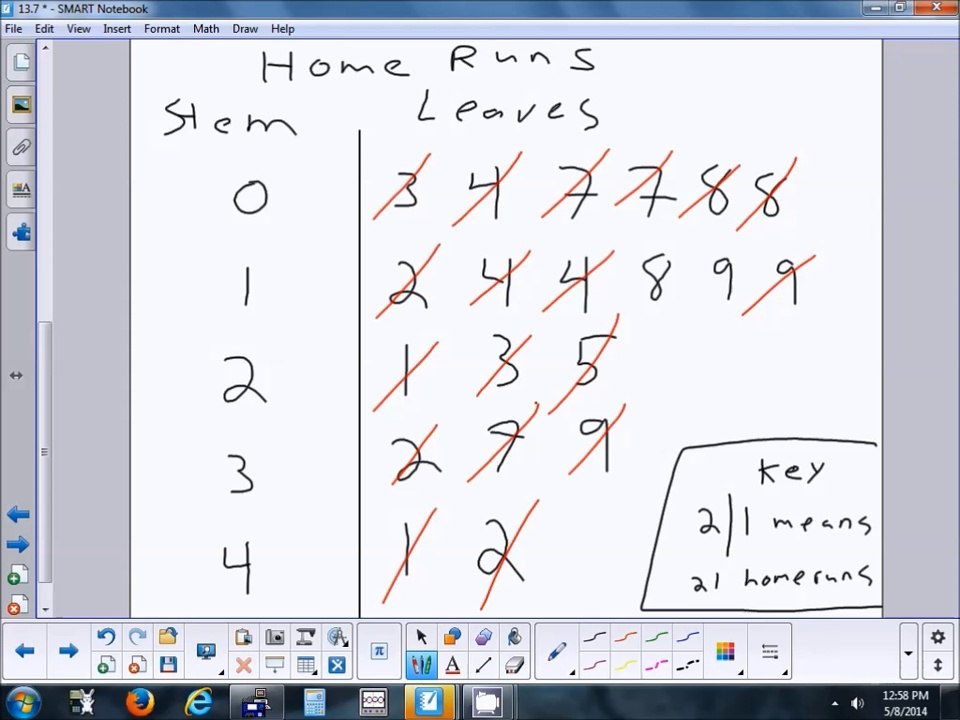 13.7 * - SMART Notebook
File Edit View Insert Format Math Draw Help
Home Runs
Stem Leaves
0 3 4 7 7 8 8
1 2 4 4 8 9 9
2 1 3 5
3 2 7 9
4 1 2
Key
2|1 means
21 homeruns
π
A
12:58 PM
5/8/2014